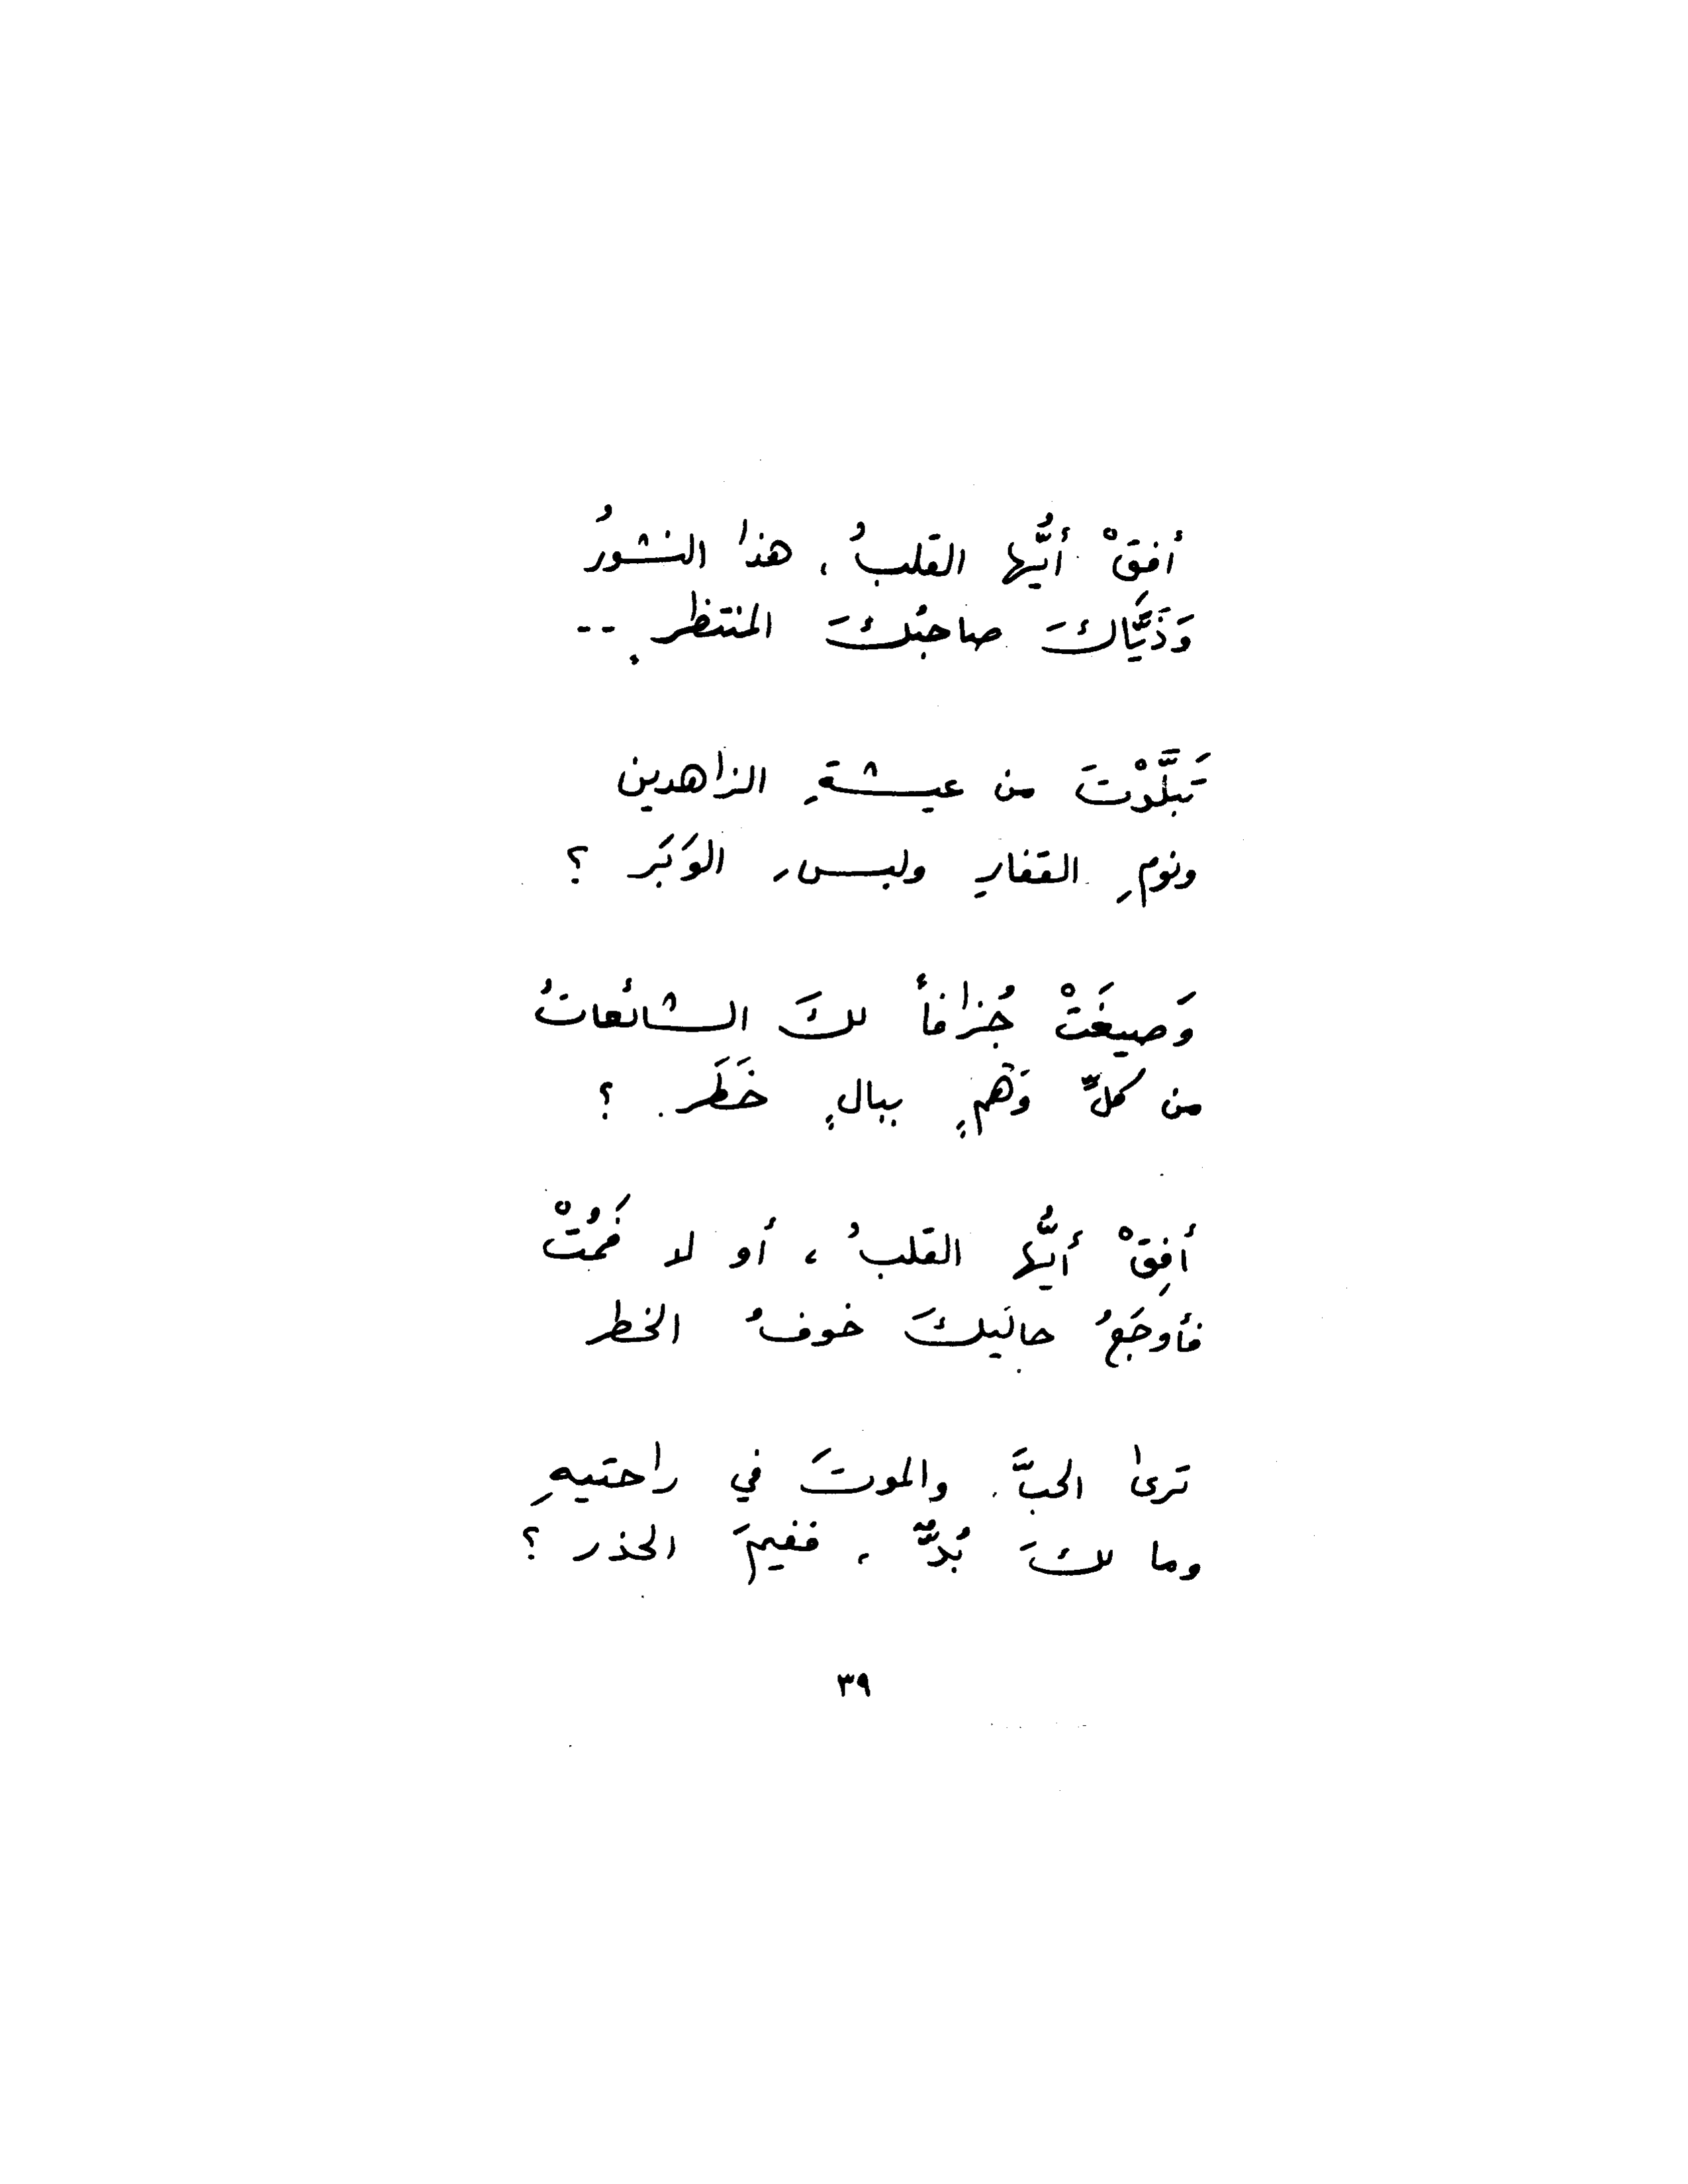 أفقْ أيُّها القلبُ، هذا النشورُ
وَذَيَّاكَ صاحبُكَ المنتظر --
تَبلَّدْتَ من عيشةِ الزاهدين
ونومِ القفارِ ولبسِ الوَبَر ؟
وَصيغَتْ جُزافاً لكَ الشائعاتُ
من كلِّ وَهْمٍ ببالٍ خَطَر. ؟
أفِقْ أيُّها القلبُ، أو لا فَمُتْ
فأوجَعُ حالَيكَ خوفُ الخطر
ترىٰ الحبَّ، والموتَ في راحتيهِ
وما لكَ بُدٌّ، ففيمَ الحذر ؟
٣٩